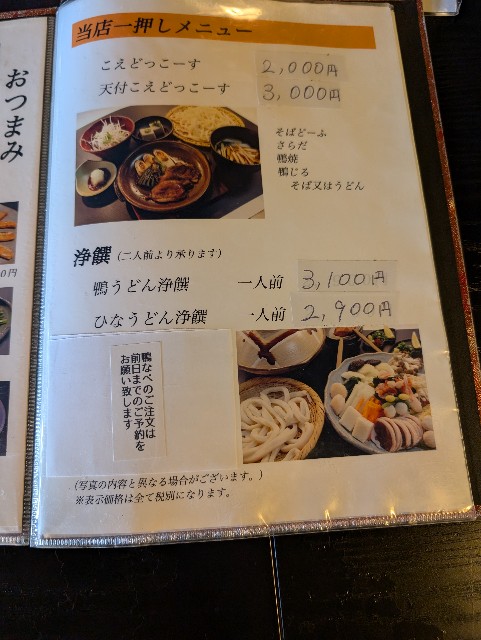 おつまみ
0円
当店一押しメニュー
こえどっこーす 2,000円
天付こえどっこーす 3,000円
そばどーふ
さらだ
鴨焼
鴨じる
そば又はうどん
浄饌(二人前より承ります)
鴨うどん浄饌 一人前 3,100円
ひなうどん浄饌 一人前 2,900円
鴨なべのご注文は
前日までのご予約を
お願い致します
(写真の内容と異なる場合がございます。)
※表示価格は全て税別になります。